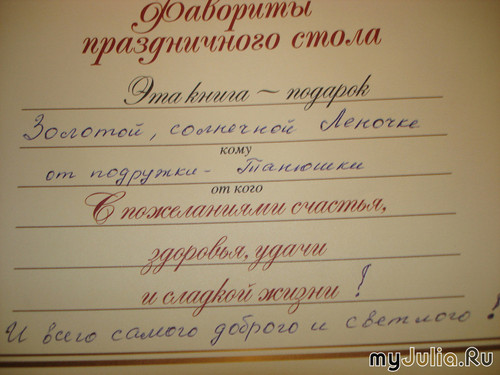 Фавориты
праздничного стола
Эта книга ~ подарок
Золотой, солнечной Леночке
кому
от подружки - Танюшки
от кого
С пожеланиями счастья,
здоровья, удачи
и сладкой жизни!
И всего самого доброго и светлого!
myJulia.Ru